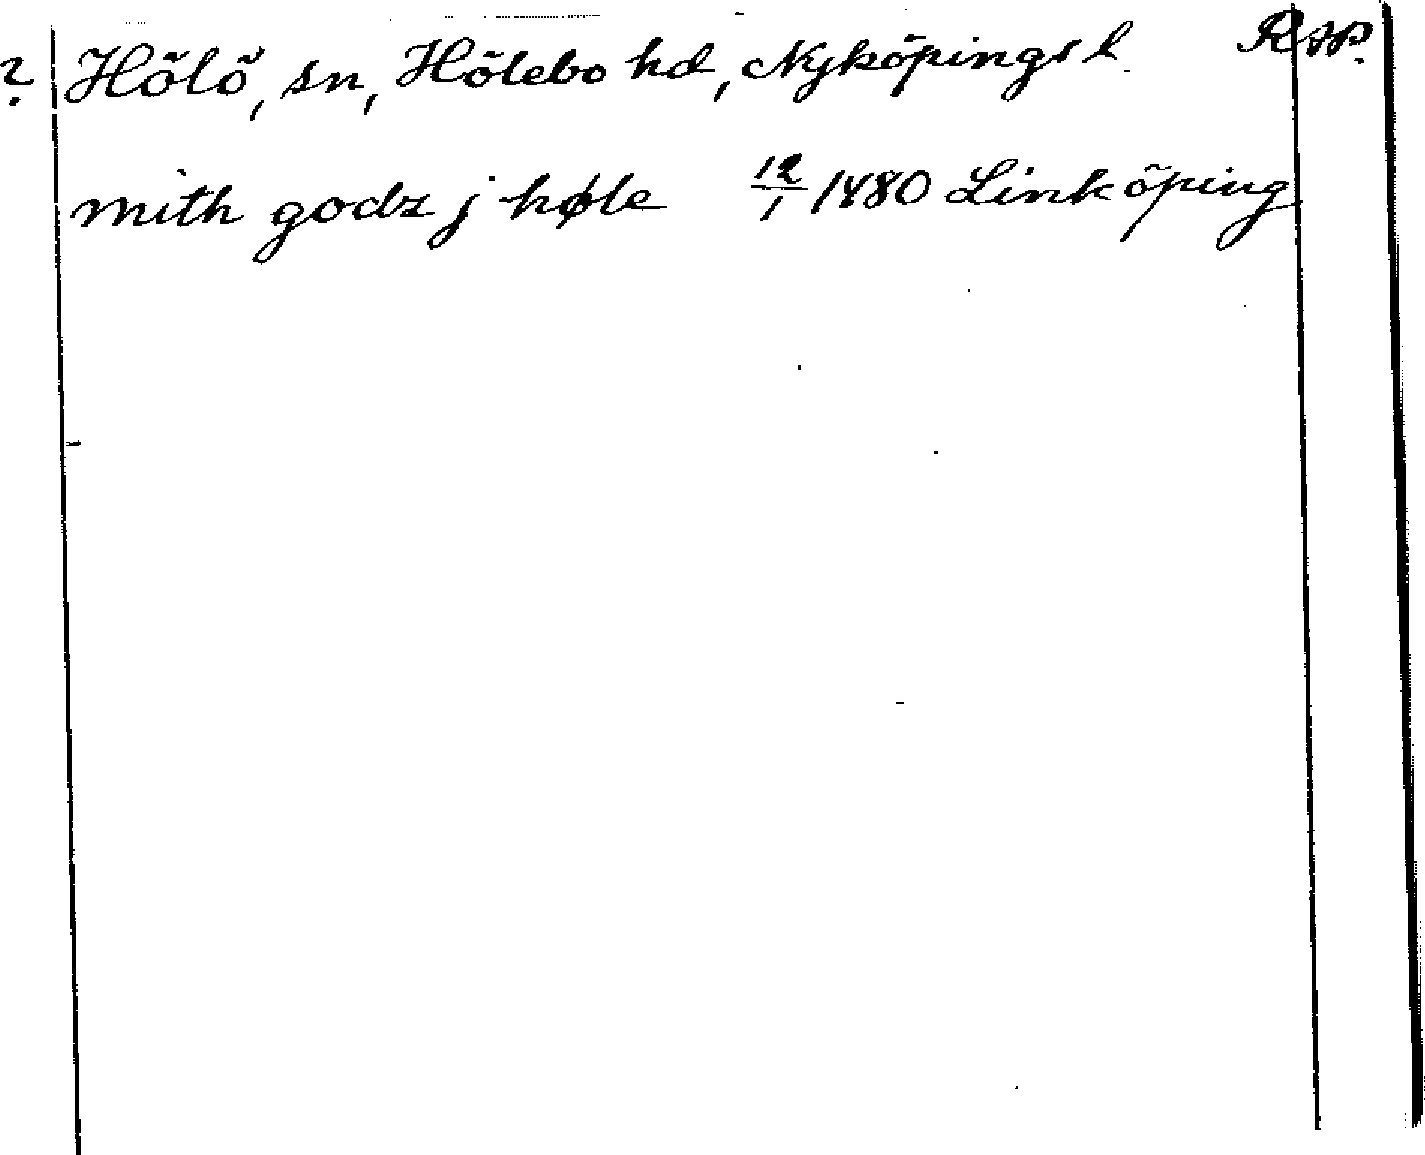 ? Hölö, sn, Hölebo hd, Nyköpings l. RAP.
mith godz j høle 12/1 1480 Linköping